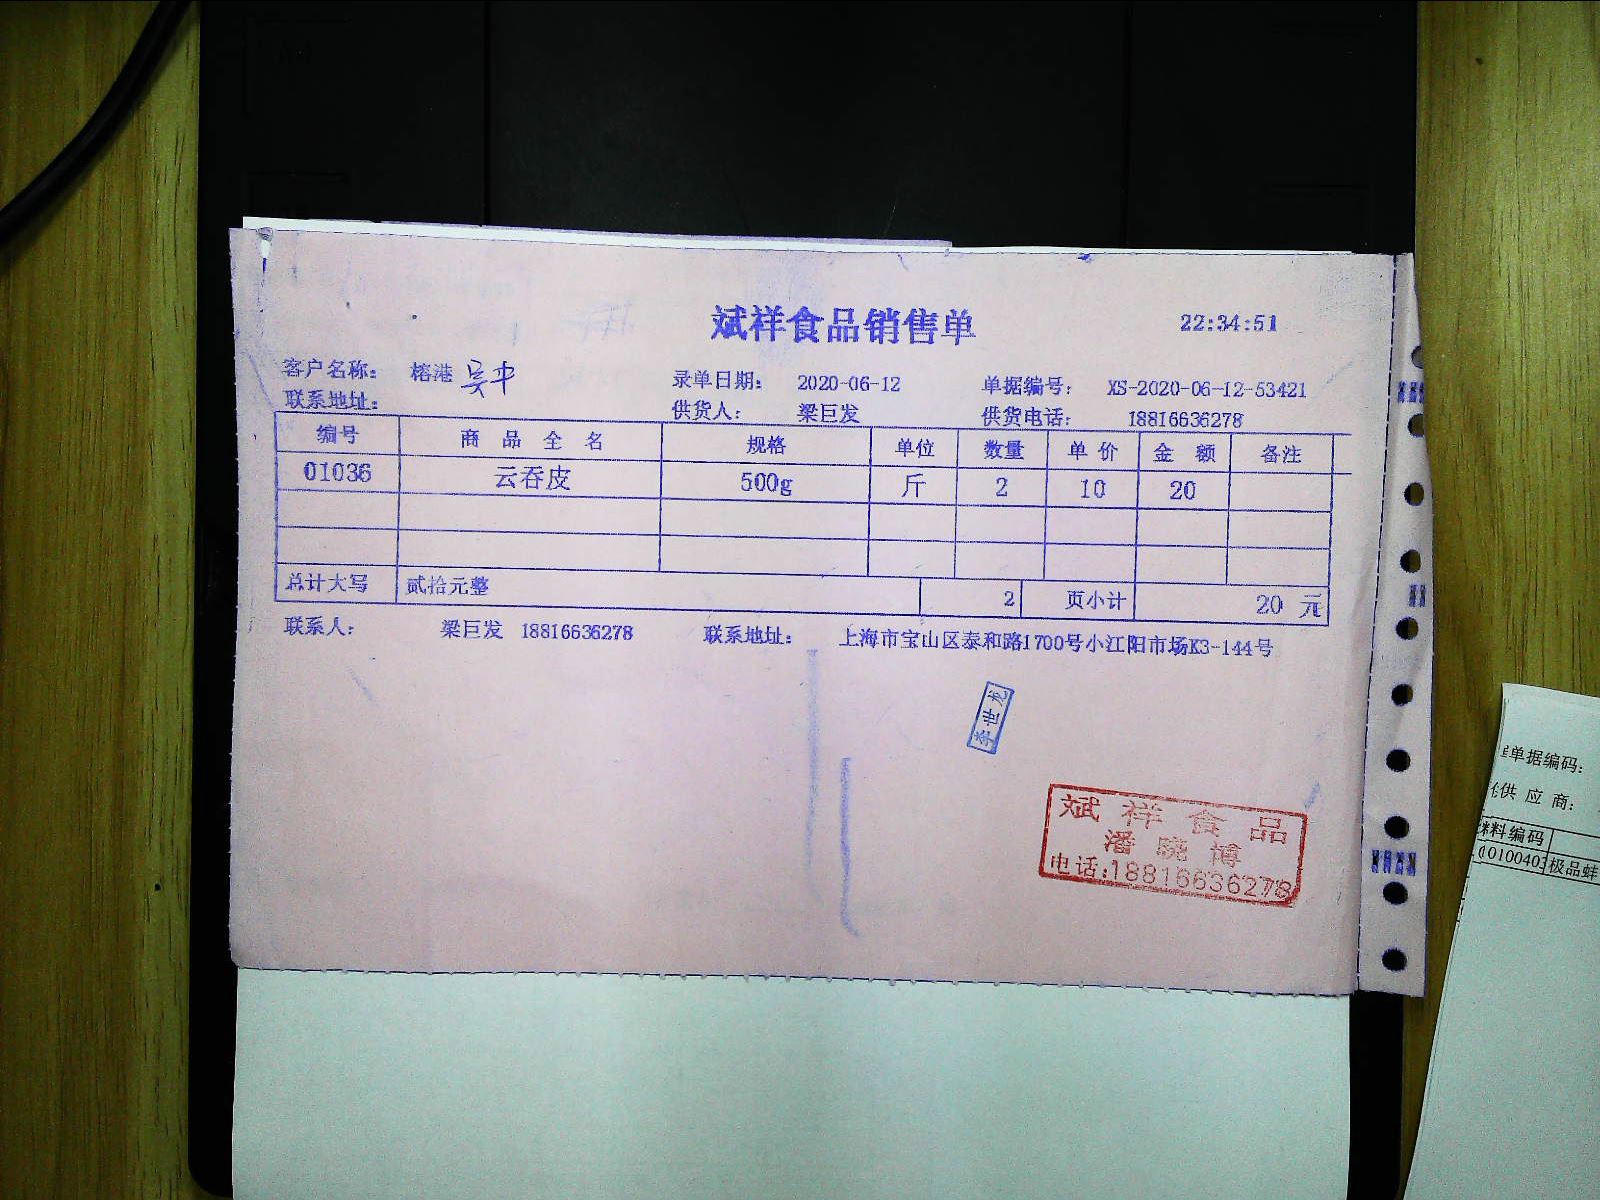 斌祥食品销售单
22:34:51
客户名称： 榕港 吴中 录单日期： 2020-06-12 单据编号： XS-2020-06-12-53421
联系地址： 供货人： 梁巨发 供货电话： 18816636278
编号 商品全名 规格 单位 数量 单价 金额 备注
01036 云吞皮 500g 斤 2 10 20
总计大写 贰拾元整 2 页小计 20 元
联系人： 梁巨发 18816636278 联系地址： 上海市宝山区泰和路1700号小江阳市场K3-144号
李世龙
斌祥食品
潘晓博
电话:18816636278
单据编码：
供应商：
料编码
010040 极品蚌